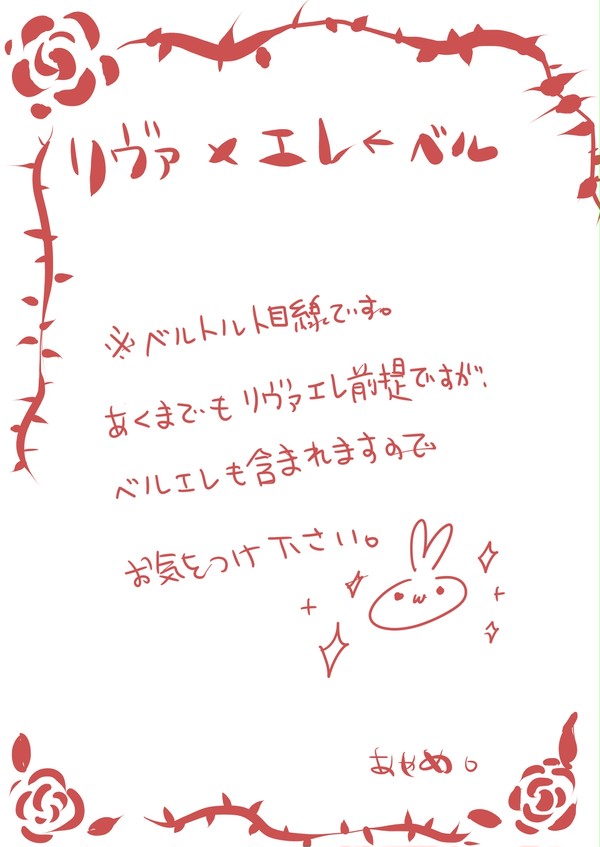 リヴァ×エレ←ベル
※ベルトルト目線です。
あくまでもリヴァエレ前提ですが、
ベルエレも含まれますので
お気をつけ下さい。
あやめ。